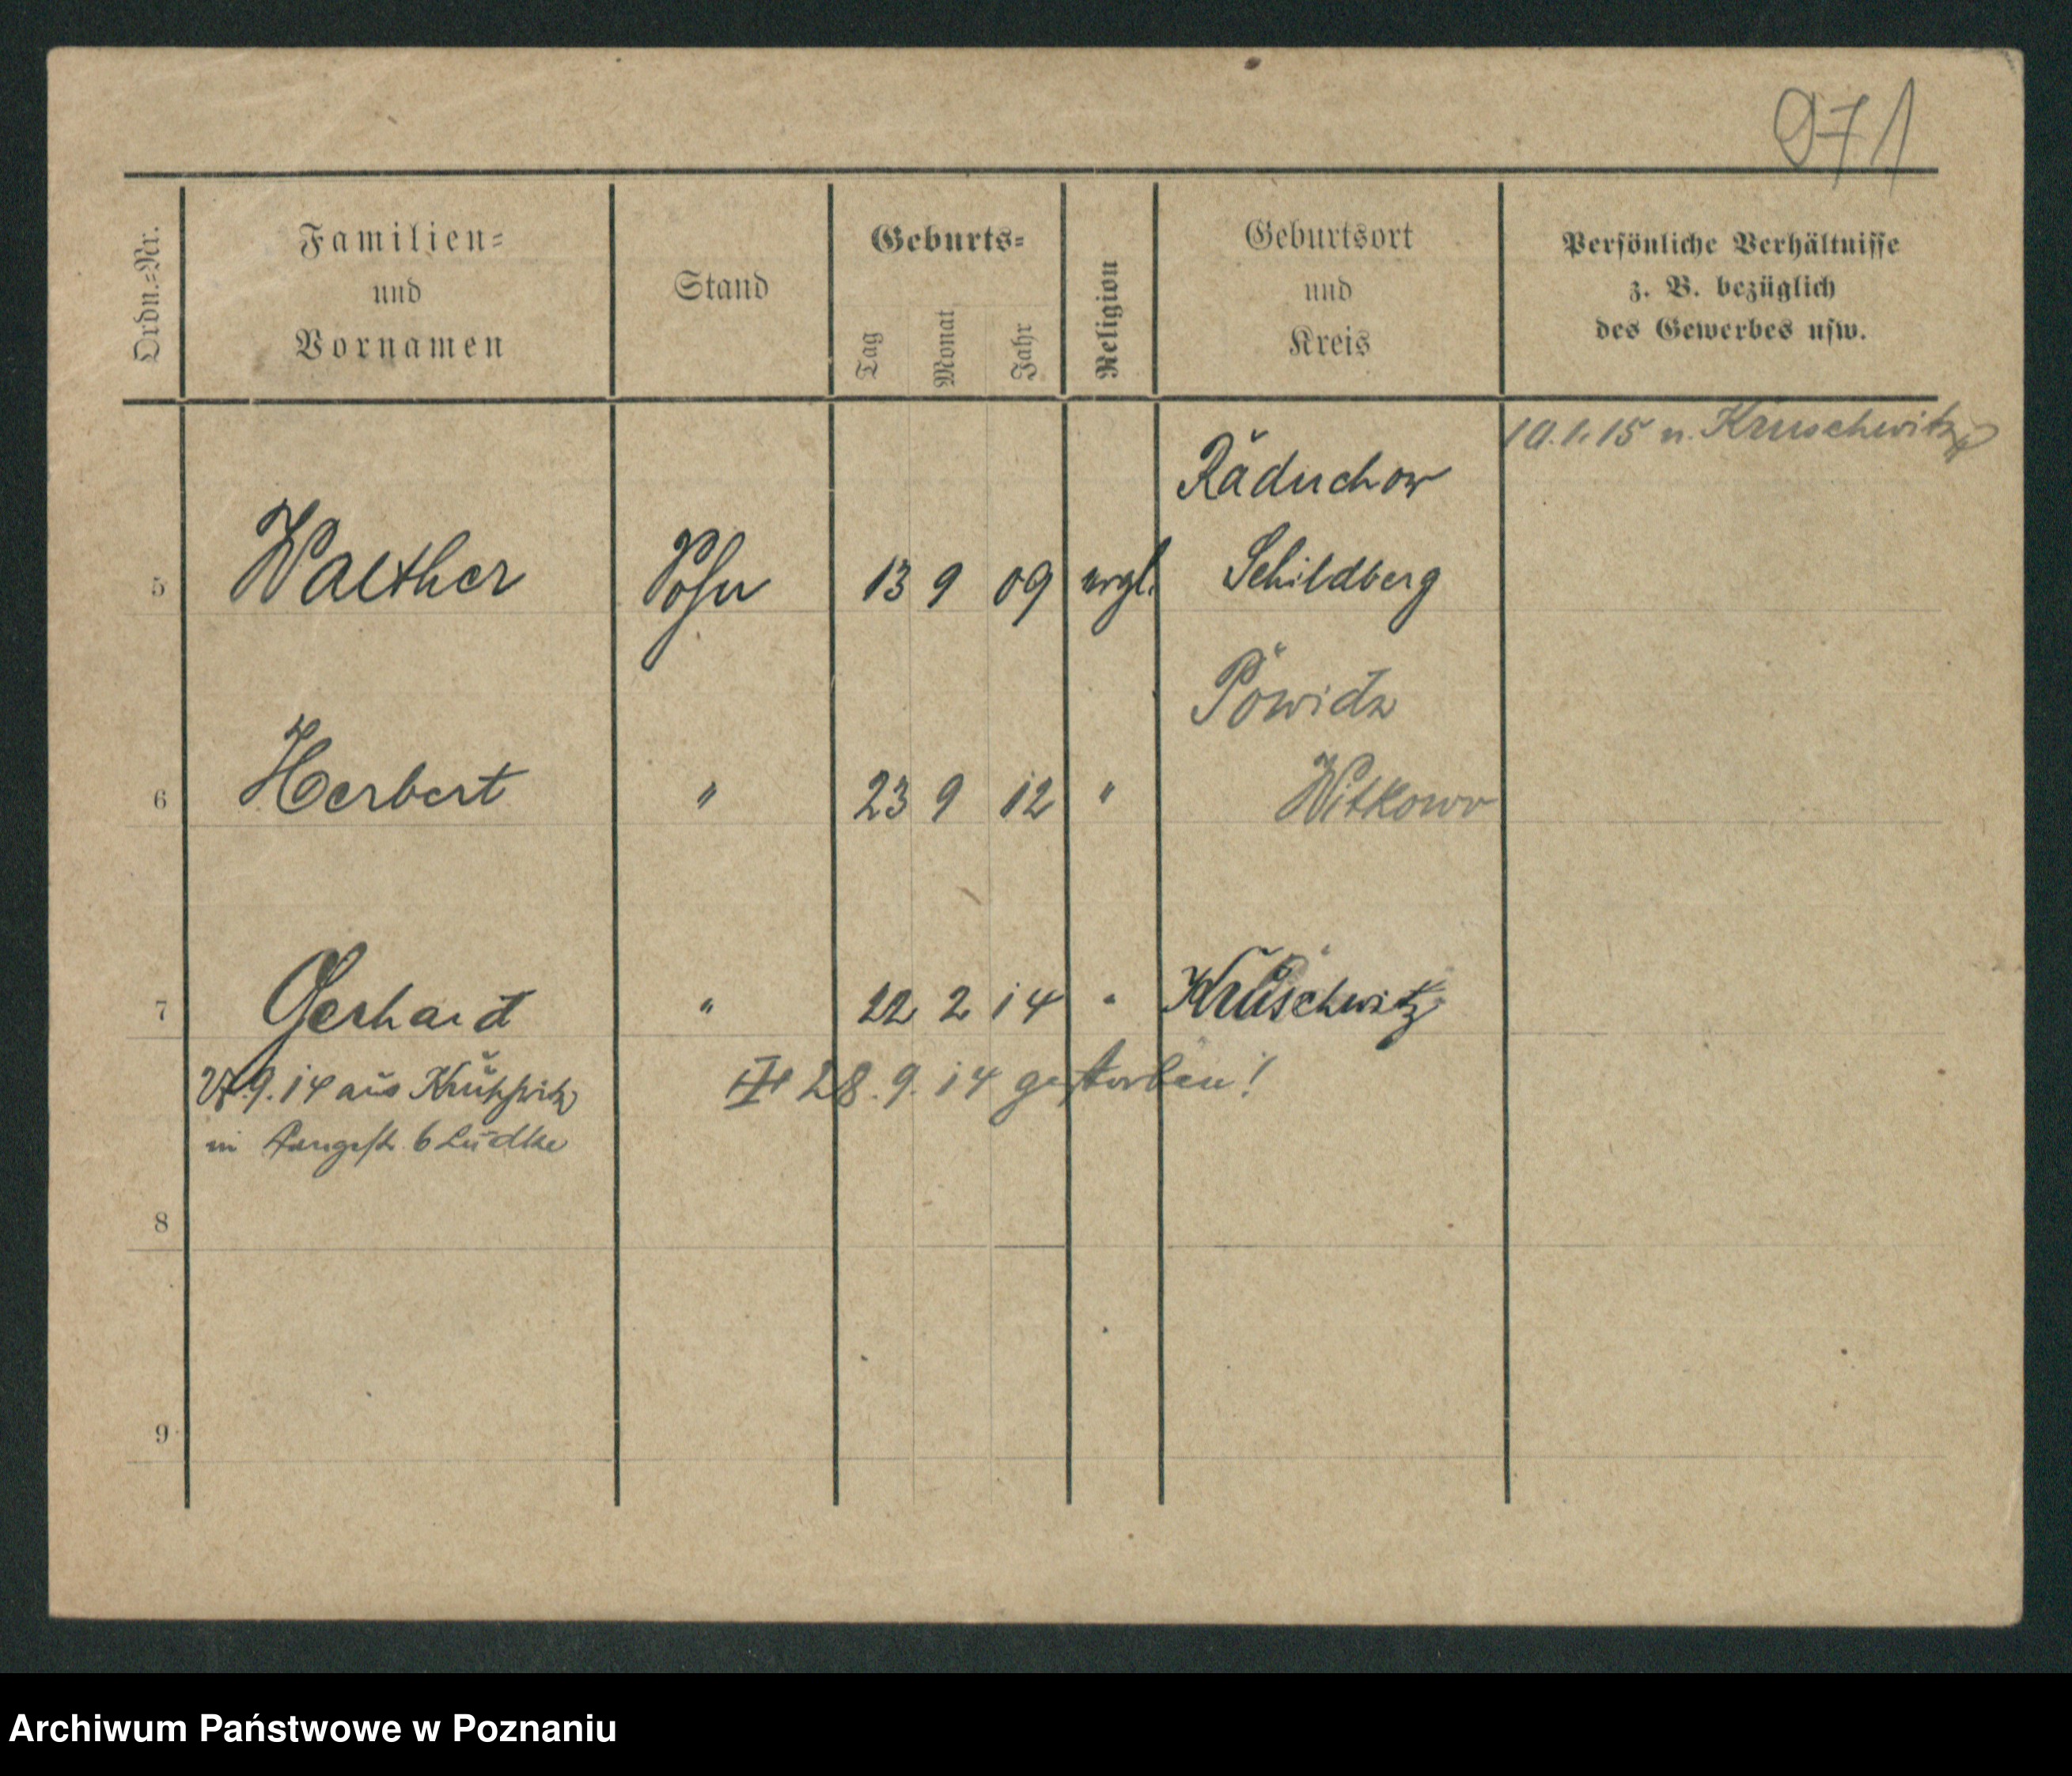 971
Ordn.=Nr.
Familien=
und
Vornamen
Stand
Geburts=
Tag
Monat
Jahr
Religion
Geburtsort
und
Kreis
Persönliche Verhältnisse
z. B. bezüglich
des Gewerbes usw.
10.1.15 n. Kruschwitz
Raduchow
5 Walther Sohn 13 9 09 evgl. Schildberg
Powidz
6 Herbert " 23 9 12 " Witkowo
7 Gerhard " 22 2 14 " Kruschwitz
9.14 aus Kruschwitz
28.9.14 gestorben!
6 Lüdtke
8
9
Archiwum Państwowe w Poznaniu